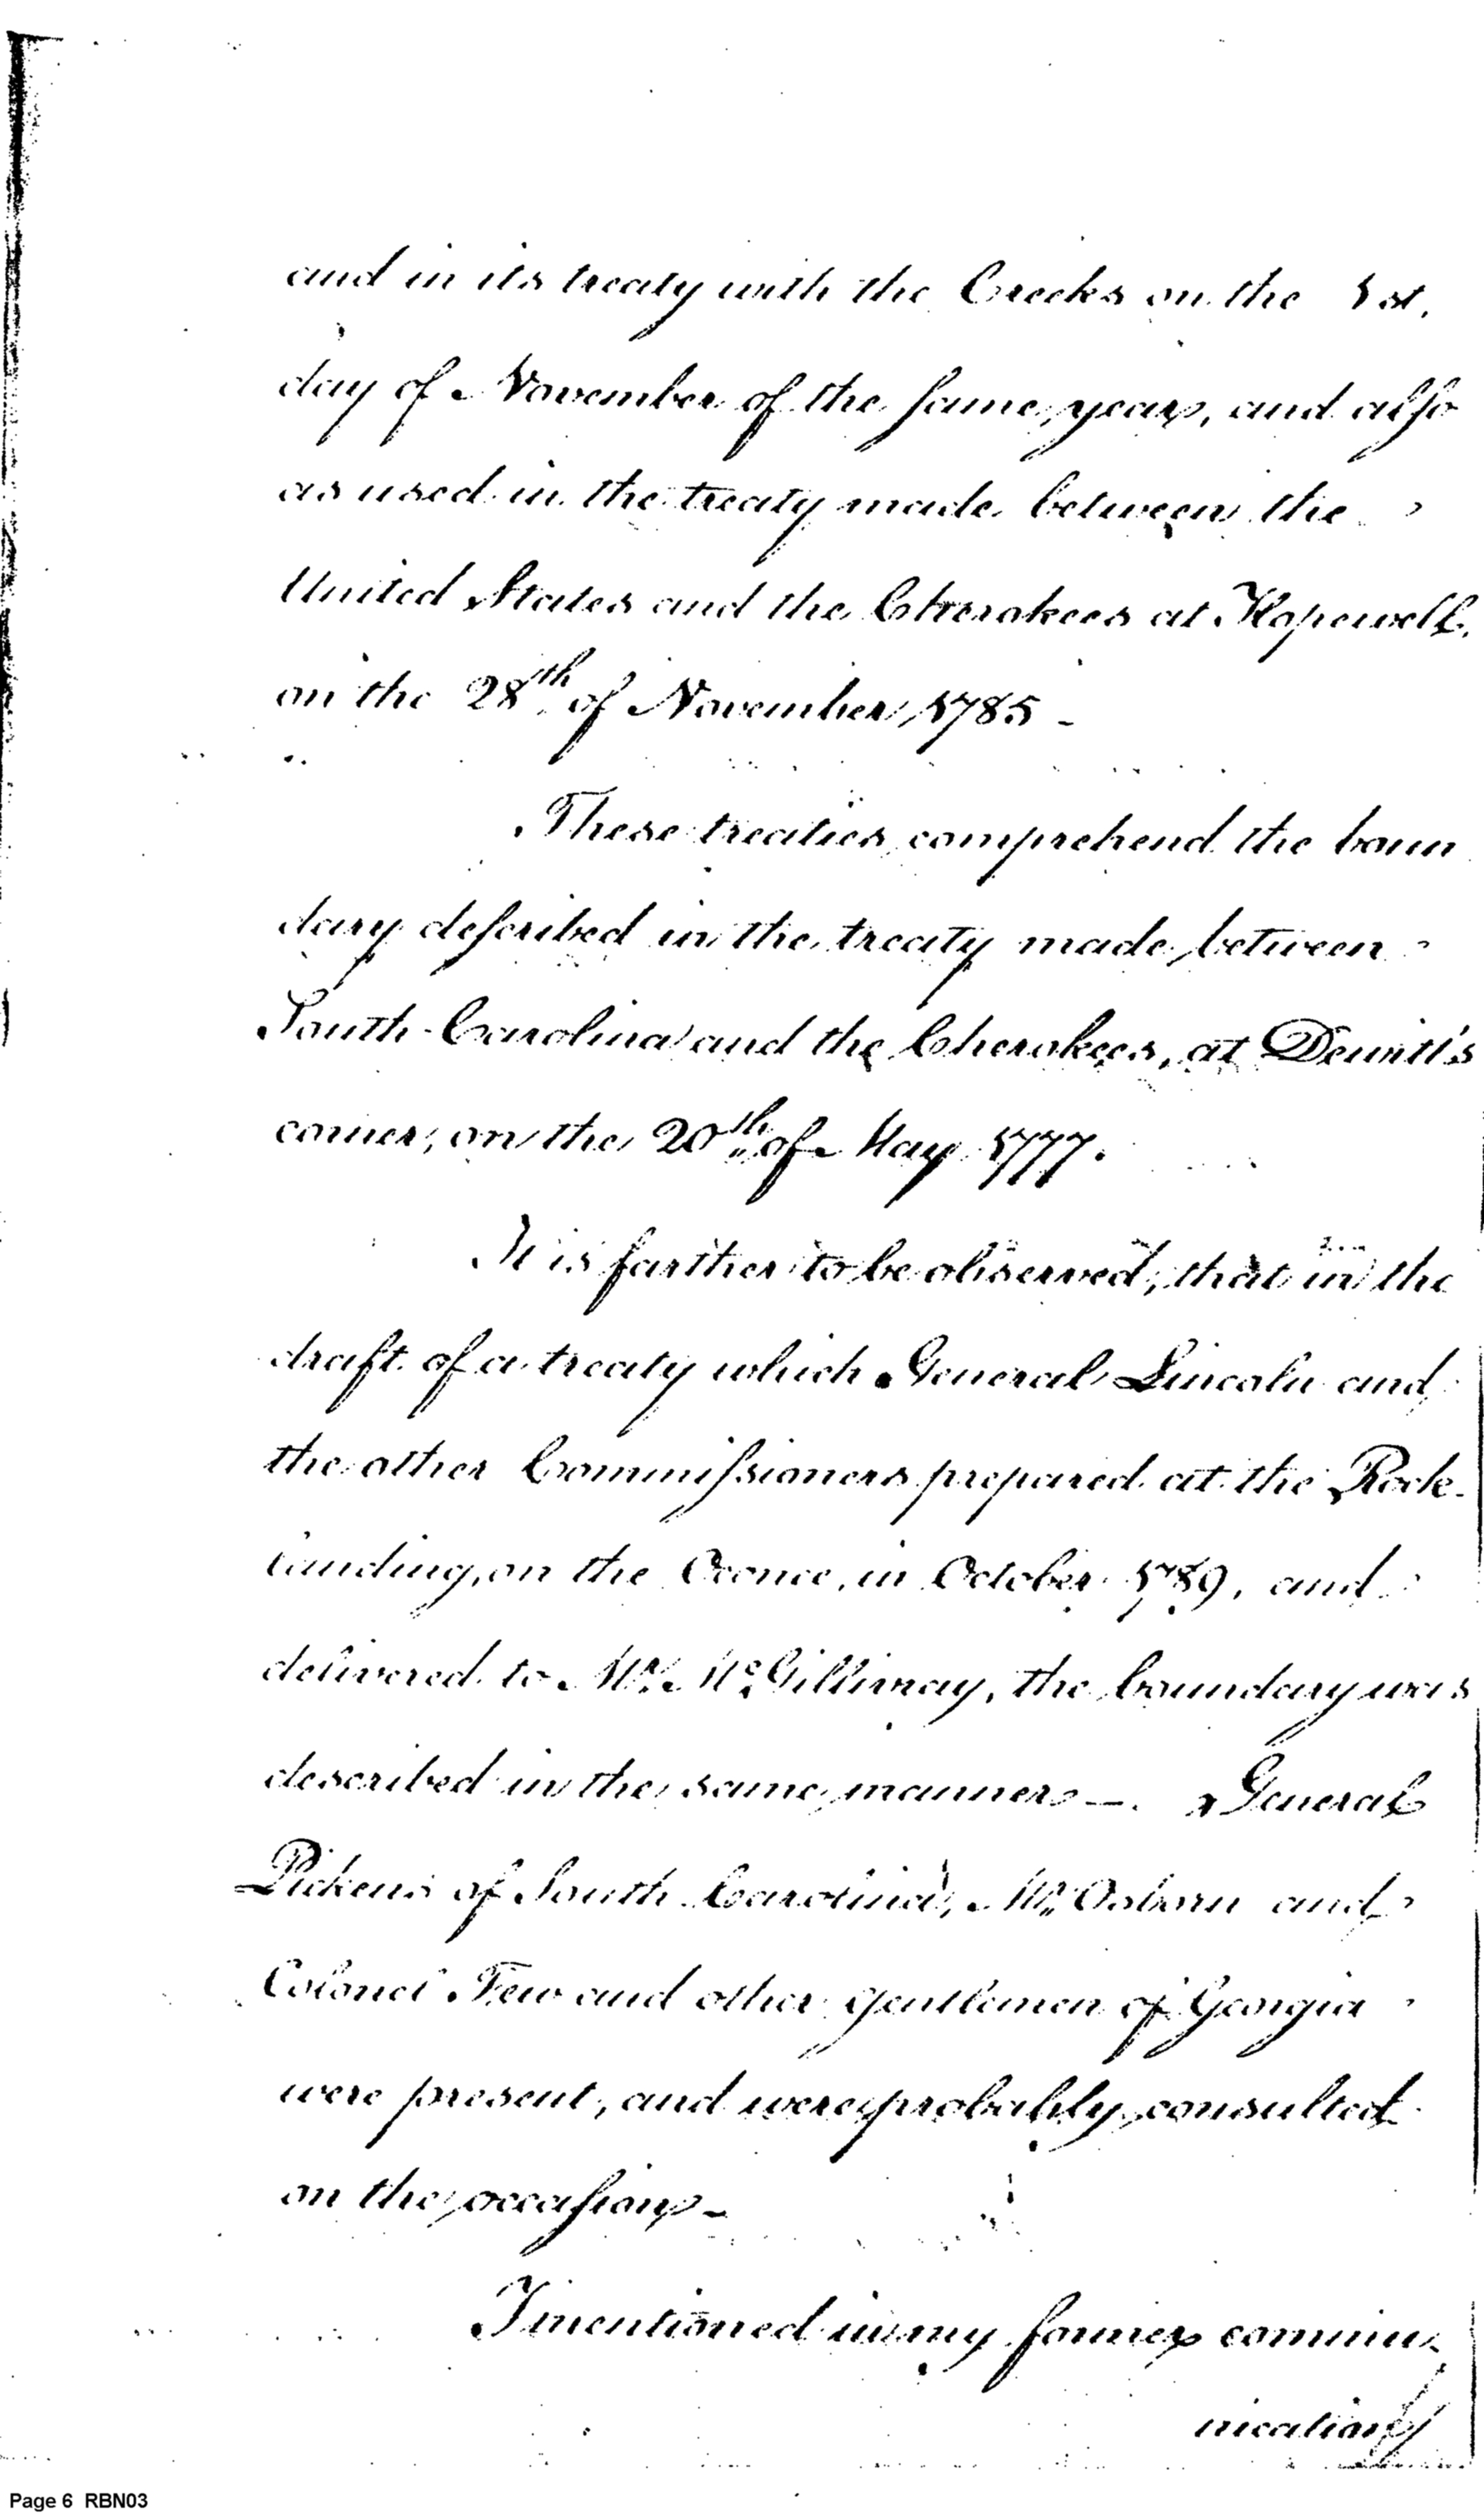 and in its treaty with the Creeks on the 1st.
day of November of the same year, and also
as used in the treaty made between the
United States and the Cherokees at Hopewell,
on the 28th of November 1785 -
These treaties comprehend the boun
dary described in the treaty made between
South-Carolina and the Cherokees, at Dewitt's
corner, on the 20th of May 1777.
It is farther to be observed, that in the
draft of a treaty which General Lincoln and
the other Commissioners prepared at the Rock-
landing, on the Oconee, in October 1789, and
delivered to Mr. McGillivray, the boundary was
described in the same manner —. General
Pickens of South Carolina, Mr. Osborn and
Colonel Few and other gentlemen of Georgia
were present, and were probably consulted
on the occasion -
I mentioned in my former commu-
nication
Page 6 RBN03